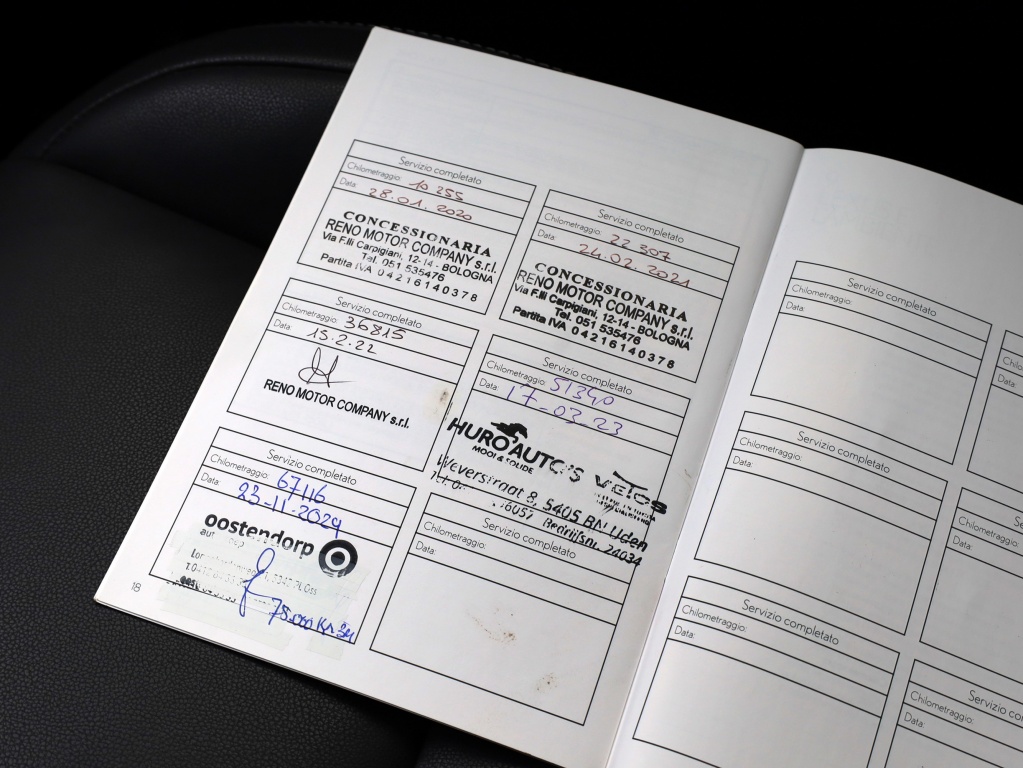 Servizio completato
Chilometraggio: 10 255
Data: 28.01.2020
CONCESSIONARIA
RENO MOTOR COMPANY s.r.l.
Via F.lli Carpigiani, 12-14 - BOLOGNA
Tel. 051 535476
Partita IVA 04216140378
Servizio completato
Chilometraggio: 22 307
Data: 24.02.2021
CONCESSIONARIA
RENO MOTOR COMPANY s.r.l.
Via F.lli Carpigiani, 12-14 - BOLOGNA
Tel. 051 535476
Partita IVA 04216140378
Servizio completato
Chilometraggio: 36815
Data: 15.2.22
RENO MOTOR COMPANY s.r.l.
Servizio completato
Chilometraggio: 51340
Data: 17-03-23
HURO AUTO'S
MOOI & SOLIDE
Weverstraat 8, 5405 BN Uden
Bedrijfsnr. 24034
Servizio completato
Chilometraggio: 67116
Data: 23-11-2024
oostendorp
Oss
Servizio completato
Chilometraggio:
Data:
18
Servizio completato
Chilometraggio:
Data:
Servizio completato
Chilometraggio:
Data:
Servizio completato
Chilometraggio:
Data:
Servizio completato
Chilometraggio:
Data: